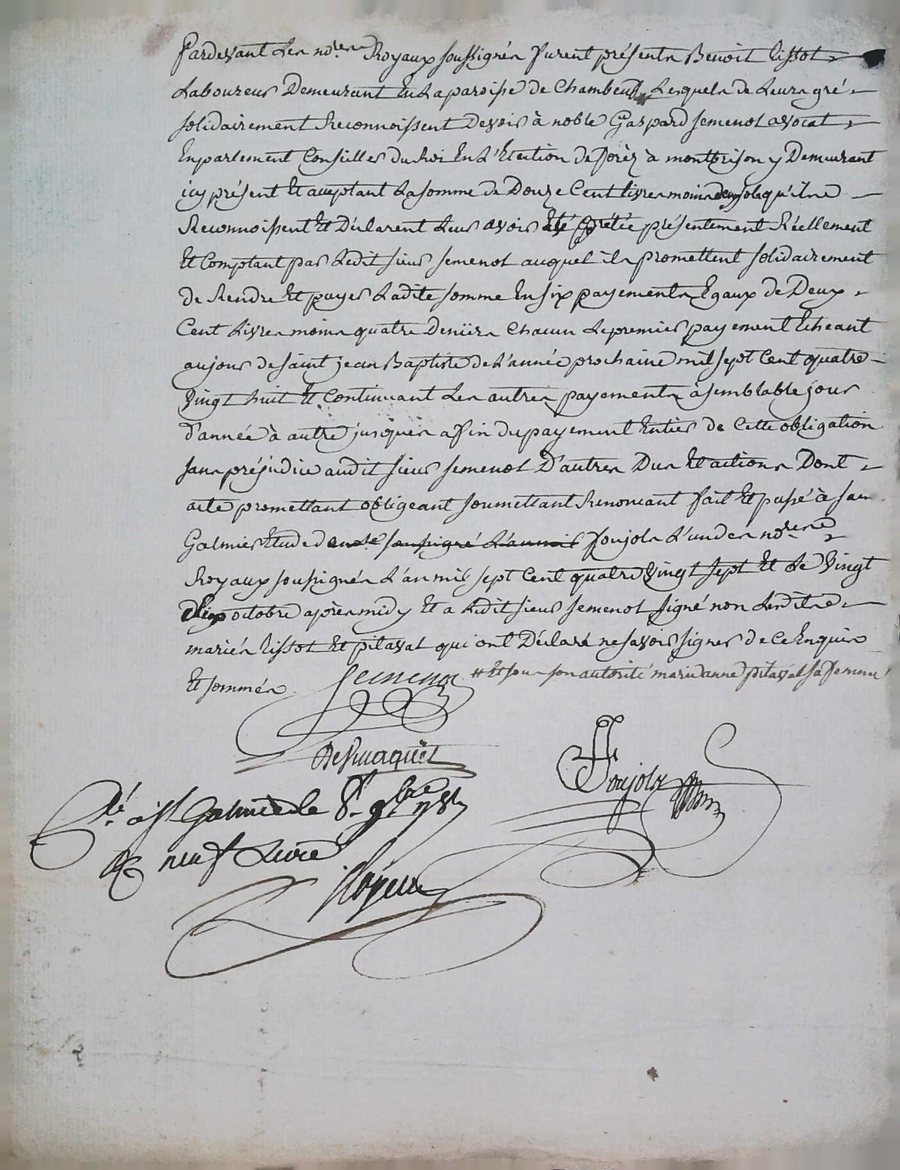 Pardevant Les no.res Royaux soussignés furent présents Benoit Tissot
Laboureur Demeurant En La paroisse de Chambeuf # Lesquels de Leurs gré
solidairement Reconnoissent Devoir à noble Gaspard semenot avocat
En parlement Conseiller du Roi En L'Election de forèz à montbrison y Demeurant
icy présent Et acceptant La somme de Douze Cent livres moins deux sols qu'ils
Reconnoissent Et Déclarent Leur avoir Eté prêtée présentement Réellement
Et Comptant par Ledit sieur semenot auquel ils promettent solidairement
de Rendre Et payer Ladite somme En six payements Egaux de Deux
Cent Livres moins quatre Deniers Chacun Le premier payement Echeant
au jour de saint jean Baptiste de L'année prochaine mil sept Cent quatre
vingt huit Et Continuant Les autres payements à semblable jour
d'année à autre jusques a fin du payement Entier de Cette obligation
sans préjudice audit sieur semenot D'autres Dus Et actions Dont
acte promettant obligeant soumettant Renoncant fait Et passé à sain
Galmier Etude de soussigné L'un poujols L'un des no.res
Royaux soussignés L'an mil sept Cent quatre vingt sept Et Le vingt
octobre après midy Et a Ledit sieur semenot signé non Lesdits
mariés Tissot Et pitaval qui ont Déclaré ne savoir signer de ce Enquis
Et sommés # Et sous son autorité marie anne pitaval sa femme
Semenot
Poujols
Cté à st Galmier le 8. 9bre 1787
Rç neuf Livres